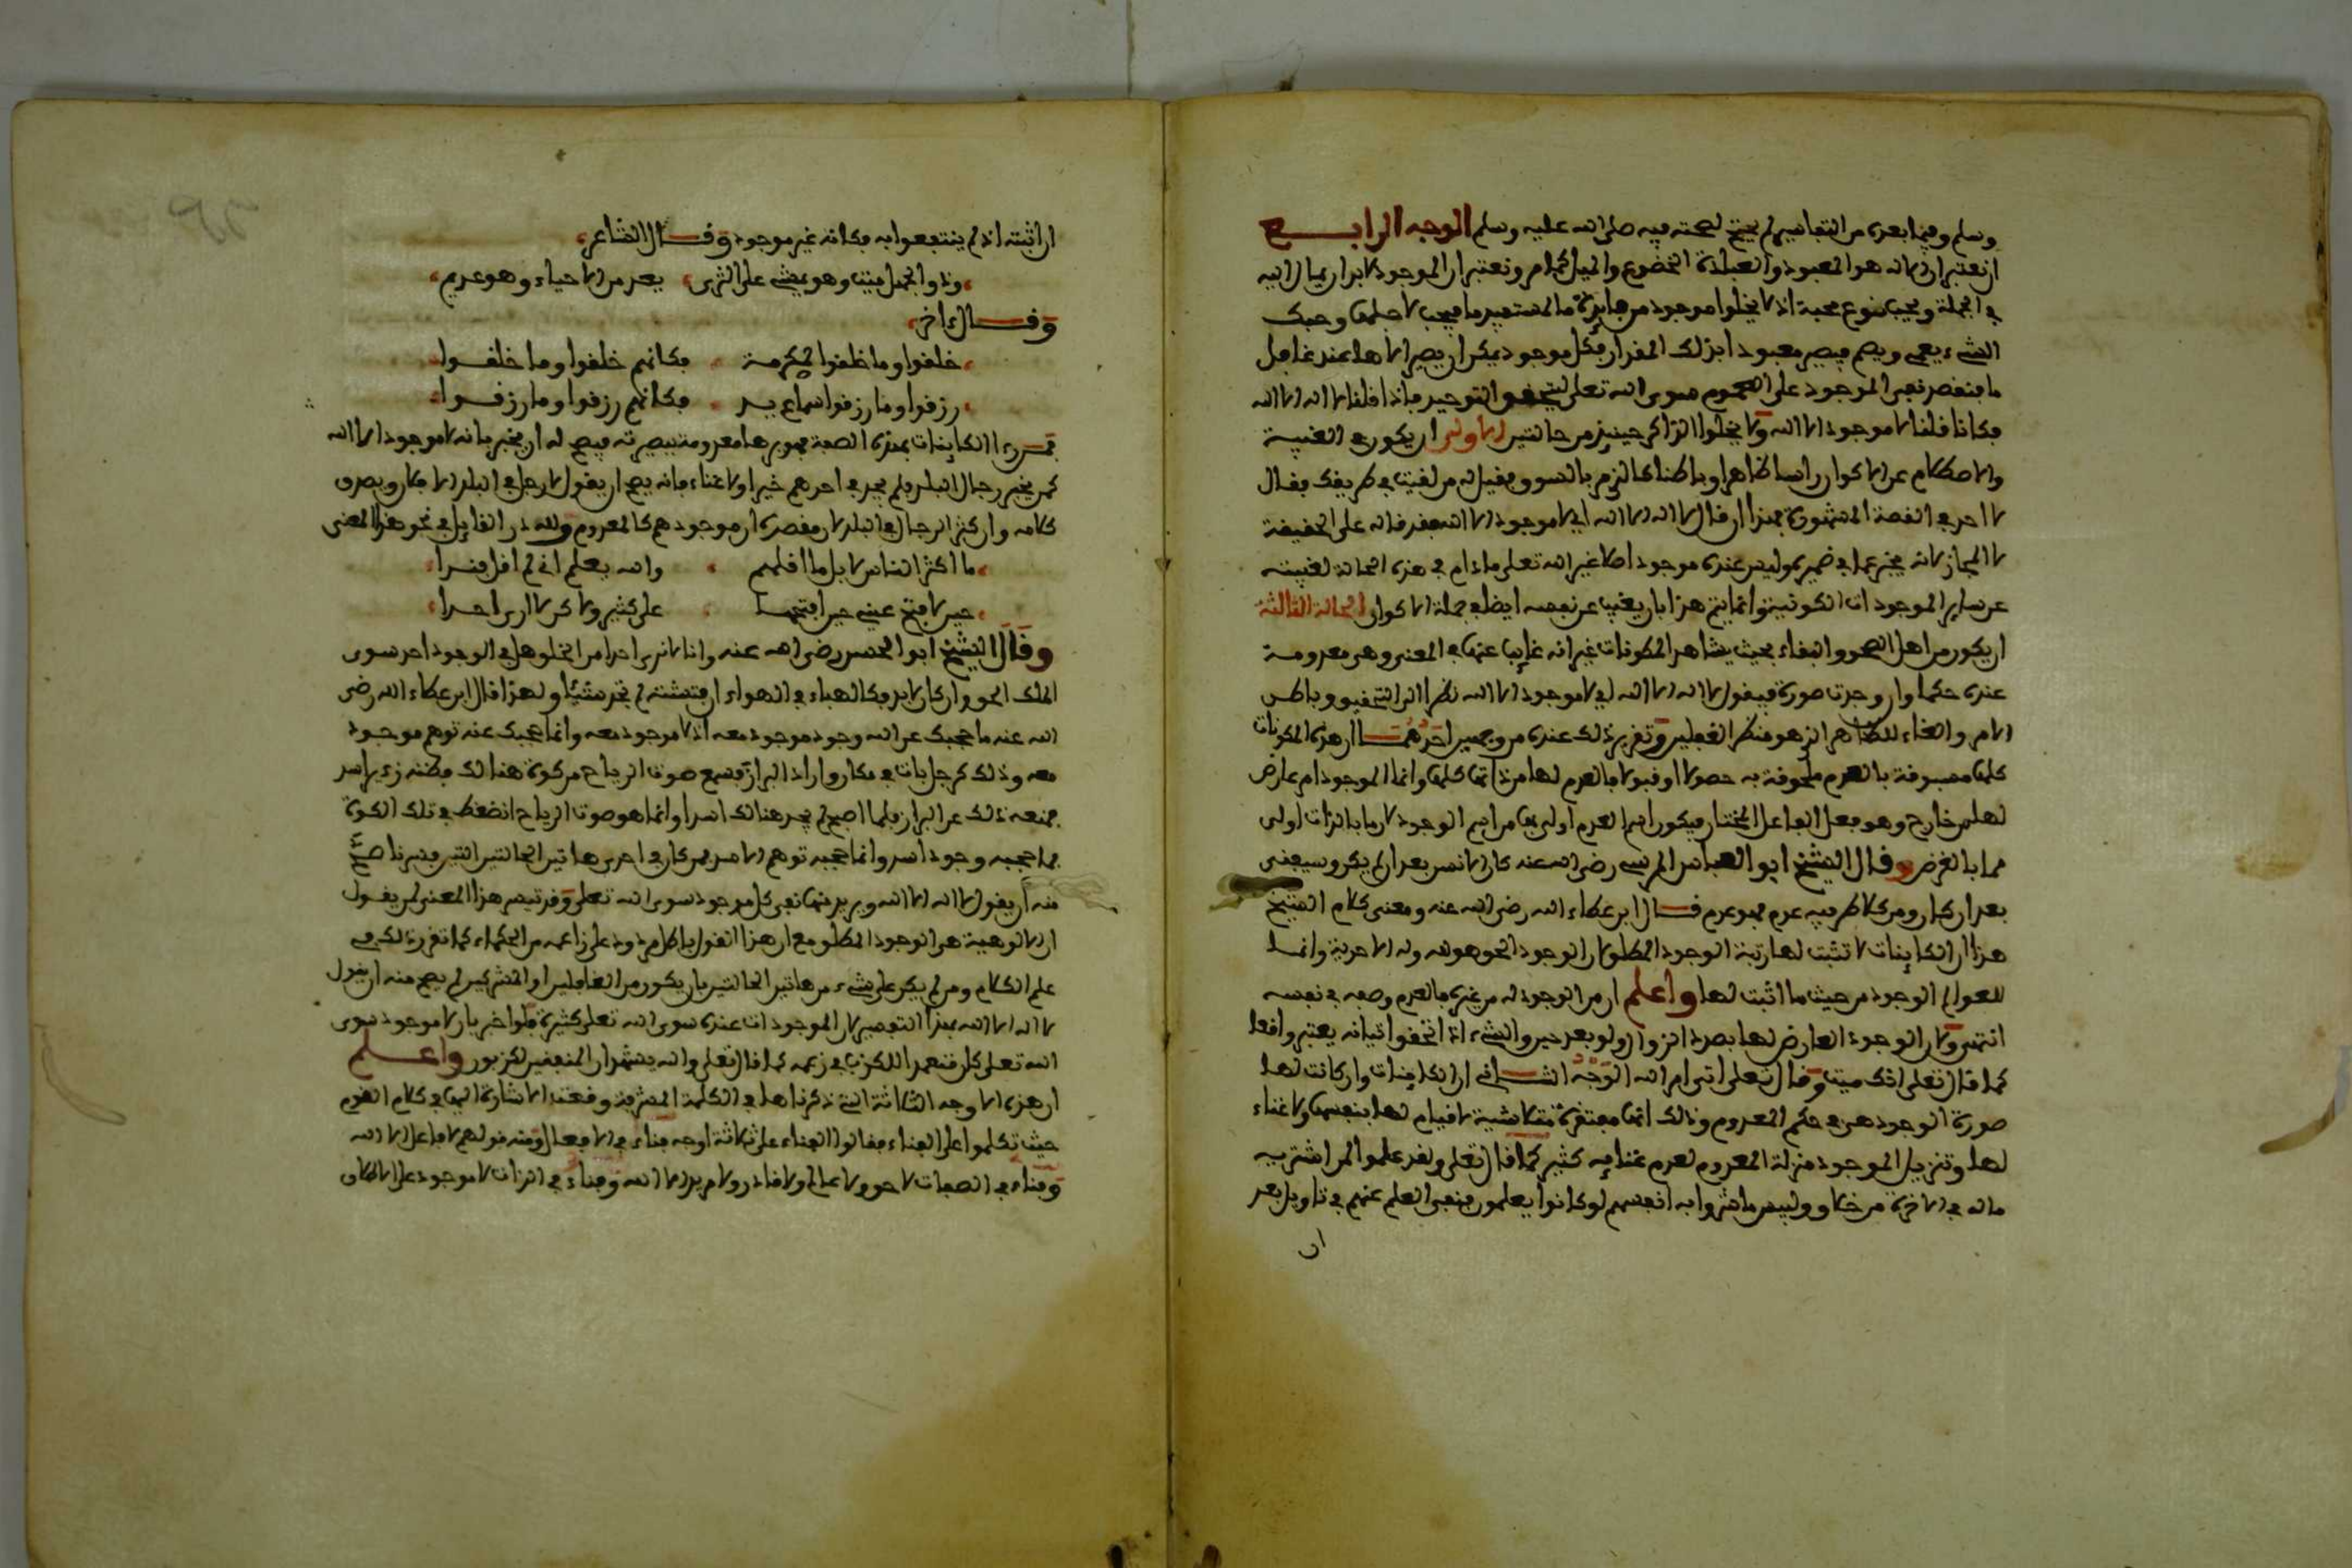 وسلم وفيما بعده من التفاسير لم يحتج لصحته فيه صلى الله عليه وسلم الوجه الرابع
ان تعتبر ان الاله هو المعبود والعبادة الخضوع والميل التام وتعتبر ان الموجود لا بد ان يمال اليه
في الجملة ويحب نوع محبة اذ لا يخلوا موجود من فايدة ما لمستفيد ما فيحب لاجلها وحبك
الشيء يعمي ويصم فيصير معبودا بذلك المقدار فكل موجود يمكن ان يصير الاها عند غافل
ما فنقصد نفي الموجود على العموم سوى الله تعلى ليتحقق التوحيد فاذا قلنا لا اله الا الله
فكانا قلنا لا موجود الا الله ولا يخلوا الذاكر حينئذ من حالتين الاولى ان يكون في الغيبة
والاصطلام عن الاكوان راسا ظاهرا وباطنا كالذي مر بالسوق فقيل له من لقيت في طريقك فقال
لا احد في القصة المشهورة فهذا ان قال لا اله الا الله اي لا موجود الا الله فقد قاله على الحقيقة
لا المجاز لانه يخبر عما في ضميره وليس عنده موجود اصلا غير الله تعلى ما دام في هذه الحالة لغيبته
عن ساير الموجودات الكونية وانما يتم هذا بان يغيب عن نفسه ايضا في جملة الاكوان الحالة الثالثة
ان يكون من اهل الصحو والبقاء بحيث يشاهد المكونات غير انه غايب عنها في المعنى وهي معدومة
عنده حكما وان وجدت صورة فيقول لا اله الا الله اي لا موجود الا الله نظرا الى التحقيق وباطن
الامر والغاء للظاهر الذي هو منظر الغافلين وتقرير ذلك عنده من وجهين احدهما ان هذه المكونات
كلها مسبوقة بالعدم ملحوقة به حصولا او قبولا فالعدم لها من ذاتها كلها وانما الوجود امر عارض
لها من خارج وهو فعل الفاعل المختار فيكون اسم العدم اولى بها من اسم الوجود لان ما بالذات اولى
مما بالغرض وقال الشيخ ابو العباس المرسي رضي الله عنه كان الانسان بعد ان لم يكن وسيفنى
بعد ان كان ومن كلا طرفيه عدم فهو عدم قال ابن عطاء الله رضي الله عنه ومعنى كلام الشيخ
هذا ان الكاينات لا تثبت لها رتبة الوجود المطلق لان الوجود الحق هو لله وله الاحدية وانما
للعوالم الوجود من حيث ما اثبت لها واعلم ان من الوجود له من غيره فالعدم وصفه في نفسه
انتهى ولان الوجود العارض لها بصدد الزوال ولو بعد حين والشيء اذا تحقق اتيانه يعتبر واقعا
كما قال تعلى انك ميت وقال تعلى اتى امر الله الوجه الثاني ان الكاينات وان كانت لها
صورة الوجود هي في حكم المعدوم وذلك انها مفتقرة متلاشية لا قيام لها بنفسها ولا غناء
لها وتنزيل الموجود منزلة المعدوم لعدم غنايه كثير كما قال تعلى ولقد علموا لمن اشتريه
ما له في الاخرة من خلاق ولبيس ما شروا به انفسهم لو كانوا يعلمون فنفى العلم عنهم في تاويل بعد
ان
ان اثبته اذ لم ينتفعوا به فكانه غير موجود وقال الشاعر
وذو الجهل ميت وهو يمشي على الثرى يعد من الاحياء وهو عديم
وقال ءاخر
خلقوا وما خلقوا لمكرمة فكانهم خلقوا وما خلقوا
رزقوا وما رزقوا سماع يد فكانهم رزقوا وما رزقوا
فمن رءا الكاينات بهذه الصفة فهو يراها معدومة ببصيرته فيصح له ان يخبر بانه لا موجود الا الله
كمن يخبر رجال البلد فلم يجد في احدهم خيرا ولا غناء فانه يصح ان يقول لا رجل في البلد الا فلان ويصدق
كلامه وان كثر الرجال في البلد لان مقصده ان موجودهم كالمعدوم ولله در القايل في نحو هذا المعنى
ما اكثر الناس لا بل ما اقلهم والله يعلم اني لم اقل فندا
حين لافتح عيني حين افتحها على كثير ولاكن لا ارى احدا
وقال الشيخ ابو الحسن رضي الله عنه وانا لا نرى احدا من الخلق هل في الوجود احد سوى
الملك الحق وان كان لا بد فكالهباء في الهواء ان فتشته لم تجد شيئا ولهذا قال ابن عطاء الله رضي
الله عنه ما حجبك عن الله وجود موجود معه اذ لا موجود معه وانما حجبك عنه توهم موجود
معه وذلك كرجل بات في مكان واراد البراز فسمع صوت الرياح من كوة هنالك فظنه زءير اسد
فمنعه ذلك عن البراز فلما اصبح لم يجد هنالك اسدا وانما هو صوت الرياح انضغط في تلك الكوة
فما حجبه وجود اسد وانما حجبه توهم الاسد فمن كان في احدى هاتين الحالتين اللتين قدمنا صح
منه ان يقول لا اله الا الله ويريد فيها نفي كل موجود سوى الله تعلى وقد تبصر هذا المعنى لمن يقول
ان الالوهية هي الوجود المطلق مع ان هذا القول باطل مردود على زاعمه من الحكماء كما تقرر ذلك في
علم الكلام ومن لم يكن على شيء من هاتين الحالتين بان يكون من الغافلين او المشركين لم يصح منه ان يقول
لا اله الا الله بهذا التفسير لان الموجودات عنده سوى الله تعلى كثيرة فلو اخبر بان لا موجود سوى
الله تعلى كان متعمدا للكذب في زعمه كما قال تعلى والله يشهد ان المنفقين لكذبون واعلم
ان هذه الاوجه الثلاثة التي ذكرناها في الكلمة المشرفة وقعت الاشارة اليها في كلام القوم
حيث تكلموا على الفناء فقالوا الفناء على ثلاثة اوجه فناء في الافعال ومنه قولهم لا فاعل الا الله
وفناء في الصفات لا حي ولا عالم ولا قادر ولا مريد الا الله وفناء في الذات لا موجود على الاطلاق